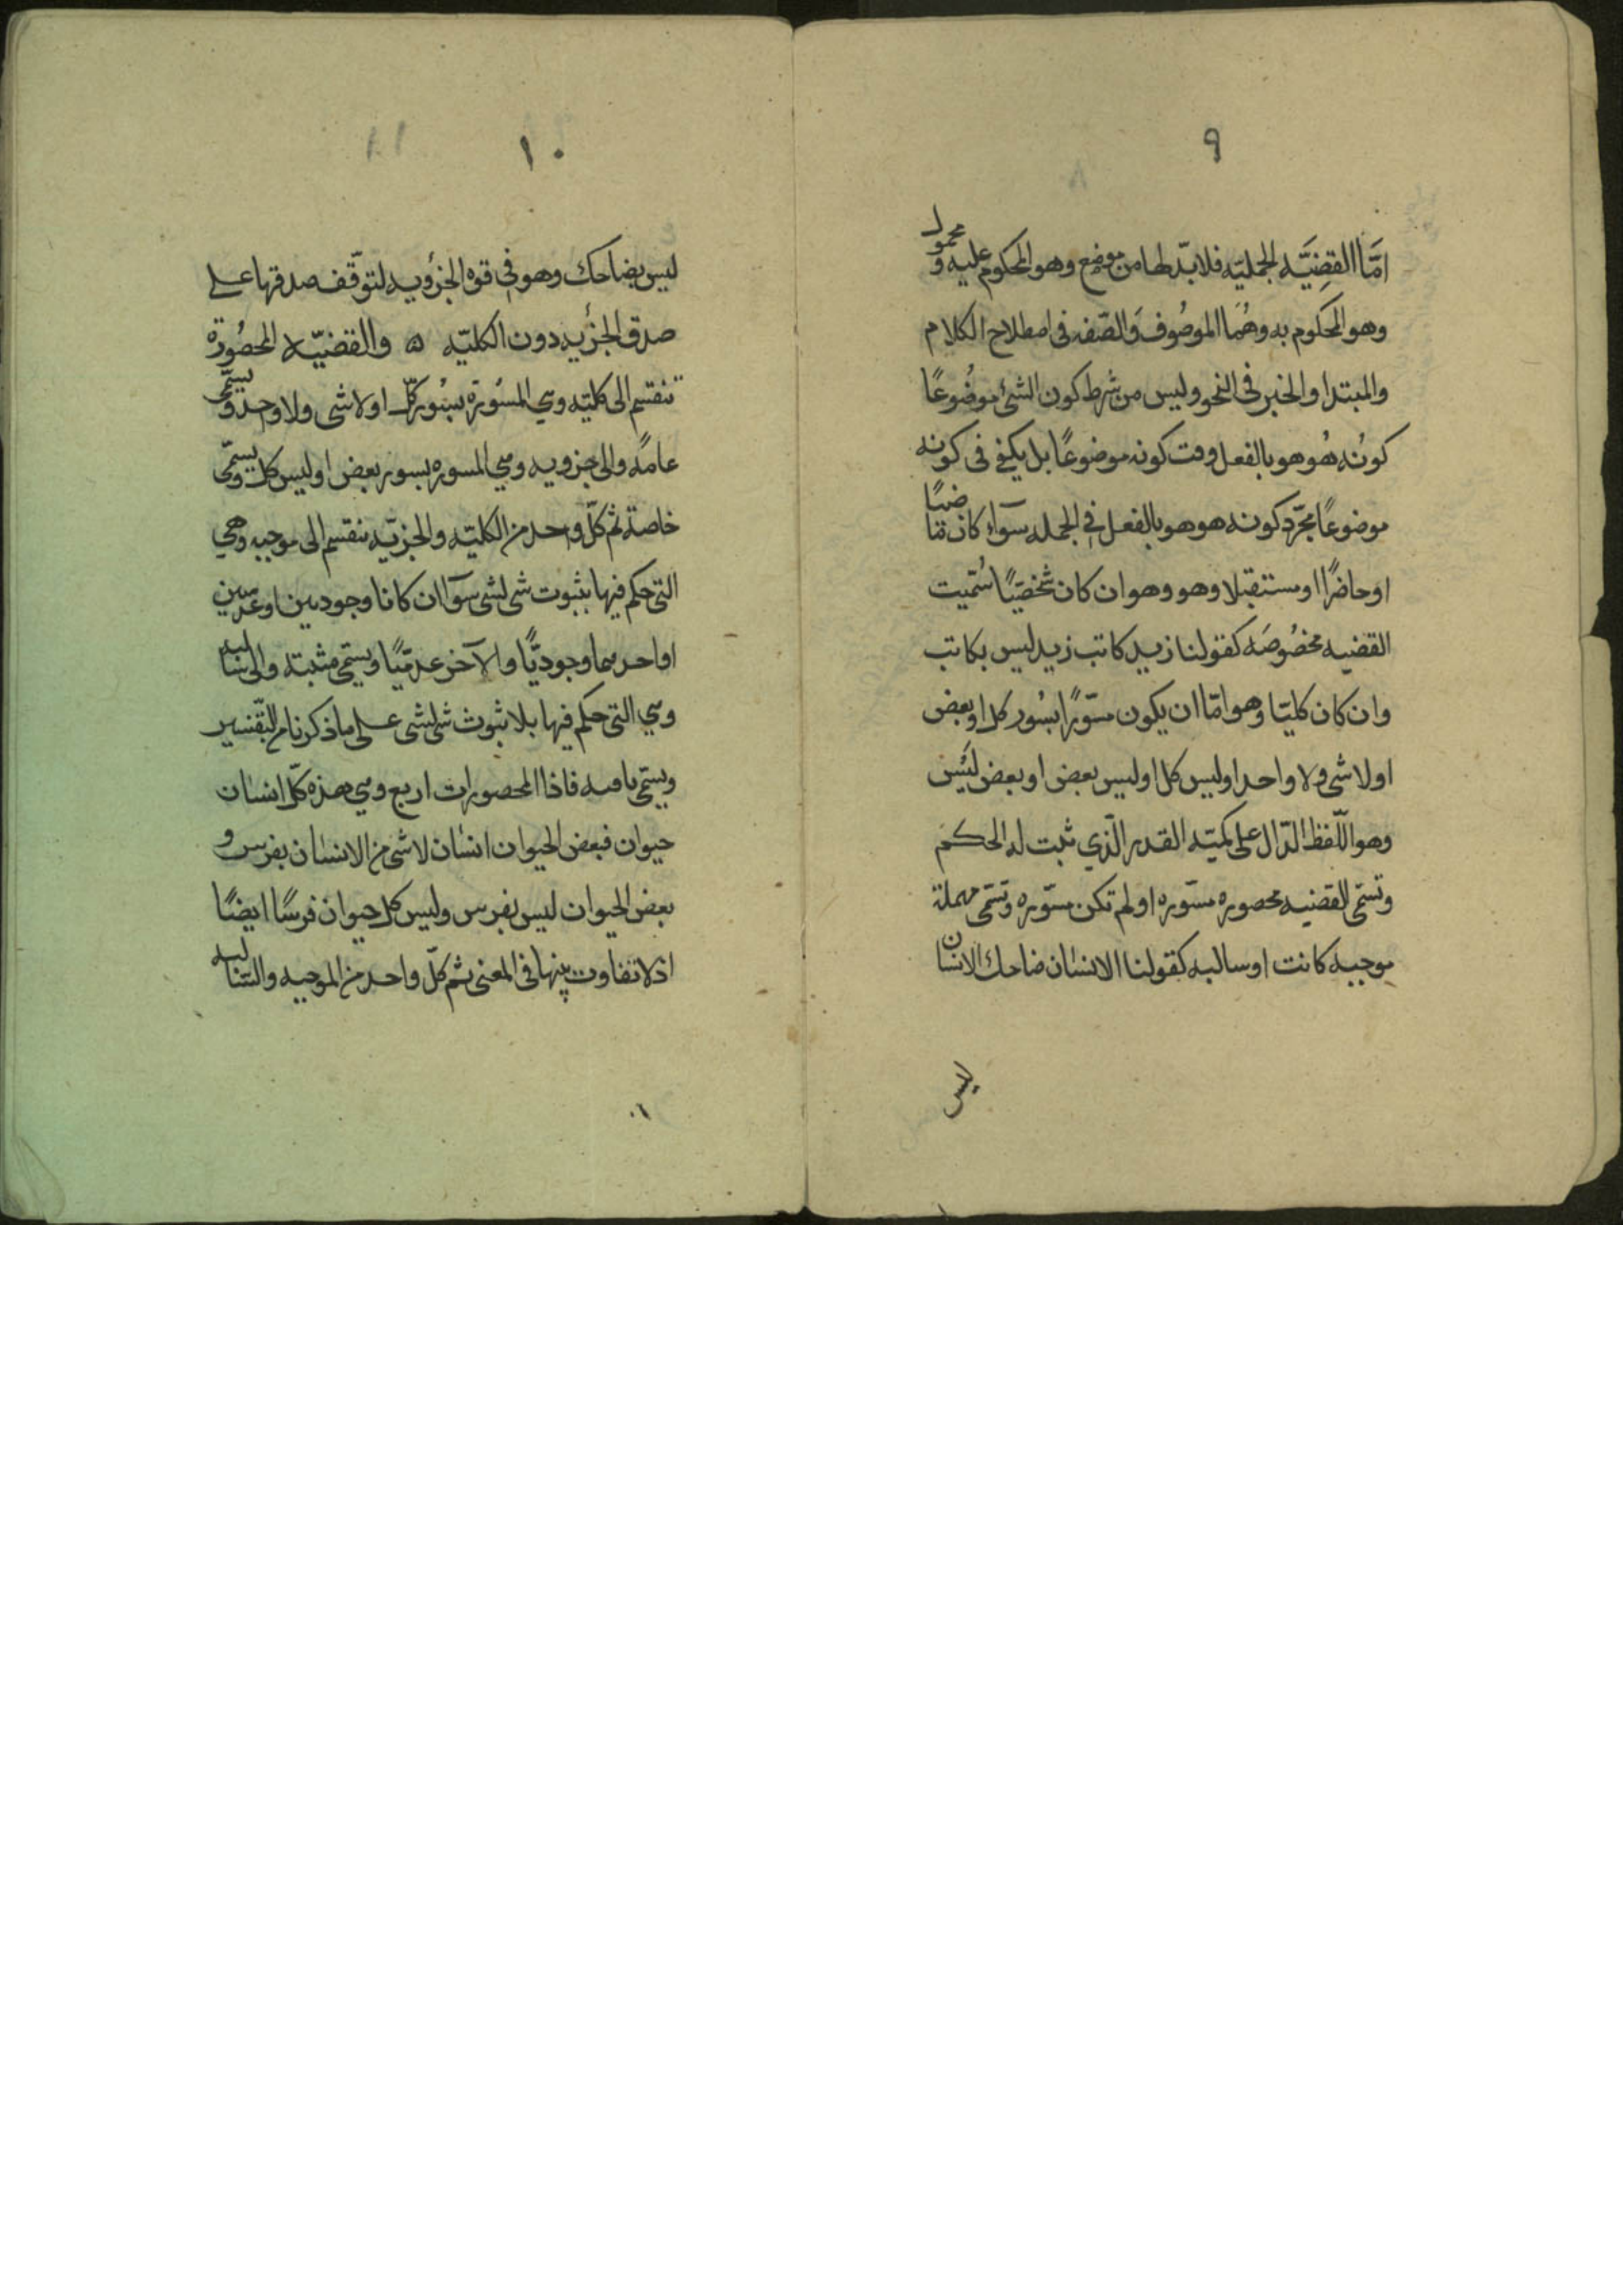 ٩
امَّا القضِيَّه الحمليّه فلابدّ لها من موضع وهو المحكوم عليه و محمول
وهو المحكوم به وهُمَا الموصُوف وَالصّفه فى اصطلاح الكلام
والمبتدا والخبر فى النحو وليس من شرط كون الشئ موضُوعًا
كونُه هُو هو بالفعل وقت كونه موضوعًا بل يكفى فى كونه
موضوعًا مجرّد كونه هو هو بالفعل فى الجمله سوآء كان ماضيًا
او حاضرًا او مستقبلا وهو وهو ان كان شخصيّا سُمّيت
القضيه مخصُوصَه كقولنا زيد كاتب زيد ليس بكاتب
وان كان كليّا وهو امّا ان يكون مسوّرًا بسُور كل او بعض
او لا شى ولا واحد او ليس كل او ليس بعض او بعض ليَس
وهو اللّفظ الدّال على كميّه القدر الّذي ثبت له الحكم
وتسمّى القضيه محصوره مسوّره او لم تكن مسوّره وتسمّى مهملة
موجبه كانت او سالبه كقولنا الانسان ضاحك الانسان
ليس
١٠
١١
ليس بضاحك وهو فى قوه الجزؤيه لتوّقف صدقها على
صدق الجزئيه دون الكليّه ه والقضيّه المحصُورة
تنقسم الى كليّه وهي المسُورَة بسُور كلّ او لا شى ولا واحد ويسمّى
عامةً والى جزويه وهي المسوره بسور بعض او ليس كل ويسمّى
خاصة ثم كلّ واحد من الكليّه والجزيّه ينقسم الى موجبه وهي
التى حكم فيها بثبوت شى لشى سوآ ان كانا وجوديين او عدميين
او احدهما وجوديًّا والآخر عدميّا ويسمّى مثبته والى سالبه
وهي التى حكم فيها بلا ثبوث شى لشى على ما ذكرنا من التّفسير
ويسمّى نافيه فاذا المحصورات اربع وهي هذه كلّ انسان
حيوان فبعض الحيوان انسان لا شى من الانسان بفرس و
بعض الحيوان ليس بفرس وليس كل حيوان فرسًا ايضًا
اذ لا تفاوت بينها فى المعنى ثم كلّ واحد من الموجبه والسّالبه
١٠